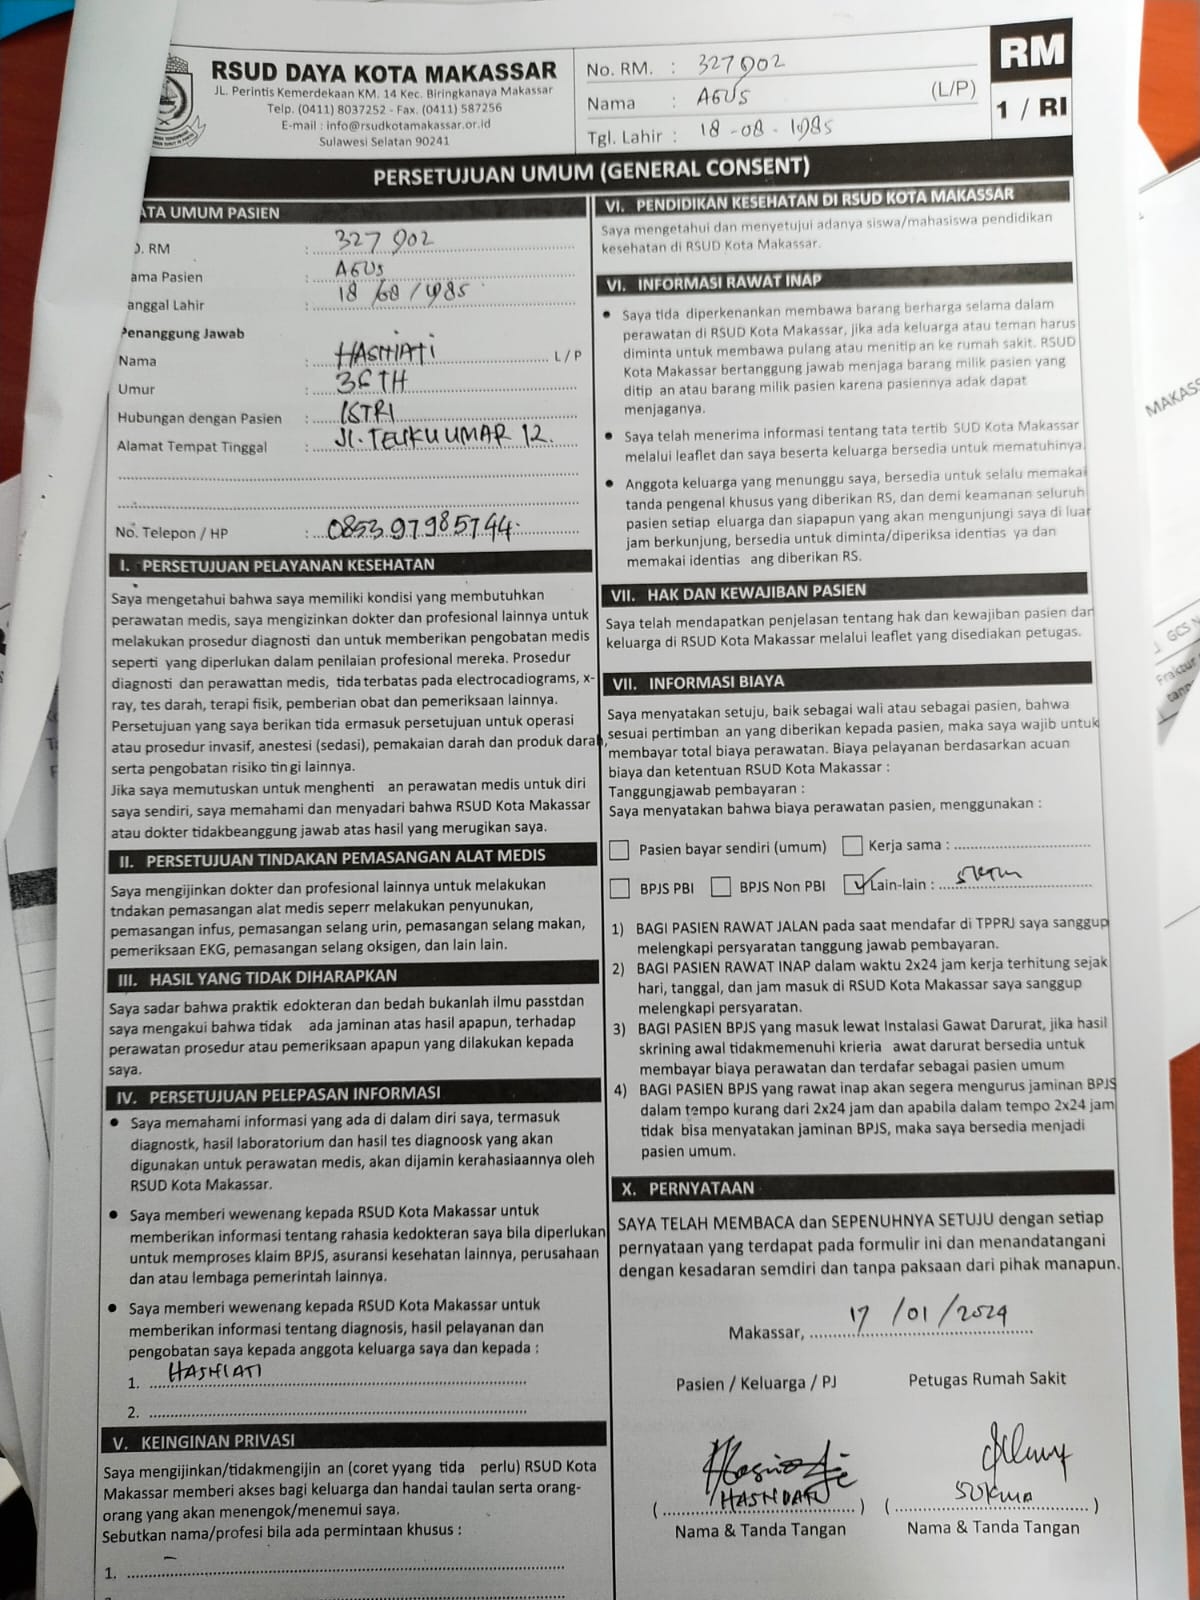 RSUD DAYA KOTA MAKASSAR
JL. Perintis Kemerdekaan KM. 14 Kec. Biringkanaya Makassar
Telp. (0411) 8037252 - Fax. (0411) 587256
E-mail : info@rsudkotamakassar.or.id
Sulawesi Selatan 90241
No. RM. : 327902
Nama : AGUS (L/P)
Tgl. Lahir : 18-08-1985
RM
1 / RI
PERSETUJUAN UMUM (GENERAL CONSENT)
ATA UMUM PASIEN
O. RM : 327 902
ama Pasien : AGUS
anggal Lahir : 18/08/1985
Penanggung Jawab
Nama : HASNIATI L / P
Umur : 36 TH
Hubungan dengan Pasien : ISTRI
Alamat Tempat Tinggal : Jl. TEUKU UMAR 12.
No. Telepon / HP : 085397985744
I. PERSETUJUAN PELAYANAN KESEHATAN
Saya mengetahui bahwa saya memiliki kondisi yang membutuhkan
perawatan medis, saya mengizinkan dokter dan profesional lainnya untuk
melakukan prosedur diagnosti dan untuk memberikan pengobatan medis
seperti yang diperlukan dalam penilaian profesional mereka. Prosedur
diagnosti dan perawattan medis, tida terbatas pada electrocadiograms, x-
ray, tes darah, terapi fisik, pemberian obat dan pemeriksaan lainnya.
Persetujuan yang saya berikan tida ermasuk persetujuan untuk operasi
atau prosedur invasif, anestesi (sedasi), pemakaian darah dan produk darah,
serta pengobatan risiko tin gi lainnya.
Jika saya memutuskan untuk menghenti an perawatan medis untuk diri
saya sendiri, saya memahami dan menyadari bahwa RSUD Kota Makassar
atau dokter tidakbeanggung jawab atas hasil yang merugikan saya.
II. PERSETUJUAN TINDAKAN PEMASANGAN ALAT MEDIS
Saya mengijinkan dokter dan profesional lainnya untuk melakukan
tndakan pemasangan alat medis seperr melakukan penyunukan,
pemasangan infus, pemasangan selang urin, pemasangan selang makan,
pemeriksaan EKG, pemasangan selang oksigen, dan lain lain.
III. HASIL YANG TIDAK DIHARAPKAN
Saya sadar bahwa praktik edokteran dan bedah bukanlah ilmu passtdan
saya mengakui bahwa tidak ada jaminan atas hasil apapun, terhadap
perawatan prosedur atau pemeriksaan apapun yang dilakukan kepada
saya.
IV. PERSETUJUAN PELEPASAN INFORMASI
• Saya memahami informasi yang ada di dalam diri saya, termasuk
diagnostk, hasil laboratorium dan hasil tes diagnoosk yang akan
digunakan untuk perawatan medis, akan dijamin kerahasiaannya oleh
RSUD Kota Makassar.
• Saya memberi wewenang kepada RSUD Kota Makassar untuk
memberikan informasi tentang rahasia kedokteran saya bila diperlukan
untuk memproses klaim BPJS, asuransi kesehatan lainnya, perusahaan
dan atau lembaga pemerintah lainnya.
• Saya memberi wewenang kepada RSUD Kota Makassar untuk
memberikan informasi tentang diagnosis, hasil pelayanan dan
pengobatan saya kepada anggota keluarga saya dan kepada :
1. HASNIATI
2.
V. KEINGINAN PRIVASI
Saya mengijinkan/tidakmengijin an (coret yyang tida perlu) RSUD Kota
Makassar memberi akses bagi keluarga dan handai taulan serta orang-
orang yang akan menengok/menemui saya.
Sebutkan nama/profesi bila ada permintaan khusus :
1. –
VI. PENDIDIKAN KESEHATAN DI RSUD KOTA MAKASSAR
Saya mengetahui dan menyetujui adanya siswa/mahasiswa pendidikan
kesehatan di RSUD Kota Makassar.
VI. INFORMASI RAWAT INAP
• Saya tida diperkenankan membawa barang berharga selama dalam
perawatan di RSUD Kota Makassar, jika ada keluarga atau teman harus
diminta untuk membawa pulang atau menitip an ke rumah sakit. RSUD
Kota Makassar bertanggung jawab menjaga barang milik pasien yang
ditip an atau barang milik pasien karena pasiennya adak dapat
menjaganya.
• Saya telah menerima informasi tentang tata tertib SUD Kota Makassar
melalui leaflet dan saya beserta keluarga bersedia untuk mematuhinya.
• Anggota keluarga yang menunggu saya, bersedia untuk selalu memakai
tanda pengenal khusus yang diberikan RS, dan demi keamanan seluruh
pasien setiap eluarga dan siapapun yang akan mengunjungi saya di luar
jam berkunjung, bersedia untuk diminta/diperiksa identias ya dan
memakai identias ang diberikan RS.
VII. HAK DAN KEWAJIBAN PASIEN
Saya telah mendapatkan penjelasan tentang hak dan kewajiban pasien dan
keluarga di RSUD Kota Makassar melalui leaflet yang disediakan petugas.
VII. INFORMASI BIAYA
Saya menyatakan setuju, baik sebagai wali atau sebagai pasien, bahwa
sesuai pertimban an yang diberikan kepada pasien, maka saya wajib untuk
membayar total biaya perawatan. Biaya pelayanan berdasarkan acuan
biaya dan ketentuan RSUD Kota Makassar :
Tanggungjawab pembayaran :
Saya menyatakan bahwa biaya perawatan pasien, menggunakan :
Pasien bayar sendiri (umum) Kerja sama :
BPJS PBI BPJS Non PBI Lain-lain :
1) BAGI PASIEN RAWAT JALAN pada saat mendafar di TPPRJ saya sanggup
melengkapi persyaratan tanggung jawab pembayaran.
2) BAGI PASIEN RAWAT INAP dalam waktu 2x24 jam kerja terhitung sejak
hari, tanggal, dan jam masuk di RSUD Kota Makassar saya sanggup
melengkapi persyaratan.
3) BAGI PASIEN BPJS yang masuk lewat Instalasi Gawat Darurat, jika hasil
skrining awal tidakmemenuhi krieria awat darurat bersedia untuk
membayar biaya perawatan dan terdafar sebagai pasien umum
4) BAGI PASIEN BPJS yang rawat inap akan segera mengurus jaminan BPJS
dalam tempo kurang dari 2x24 jam dan apabila dalam tempo 2x24 jam
tidak bisa menyatakan jaminan BPJS, maka saya bersedia menjadi
pasien umum.
X. PERNYATAAN
SAYA TELAH MEMBACA dan SEPENUHNYA SETUJU dengan setiap
pernyataan yang terdapat pada formulir ini dan menandatangani
dengan kesadaran semdiri dan tanpa paksaan dari pihak manapun.
Makassar, 17/01/2024
Pasien / Keluarga / PJ Petugas Rumah Sakit
( ) ( Sukma )
Nama & Tanda Tangan Nama & Tanda Tangan
MAKASS
GCS
Fraktur